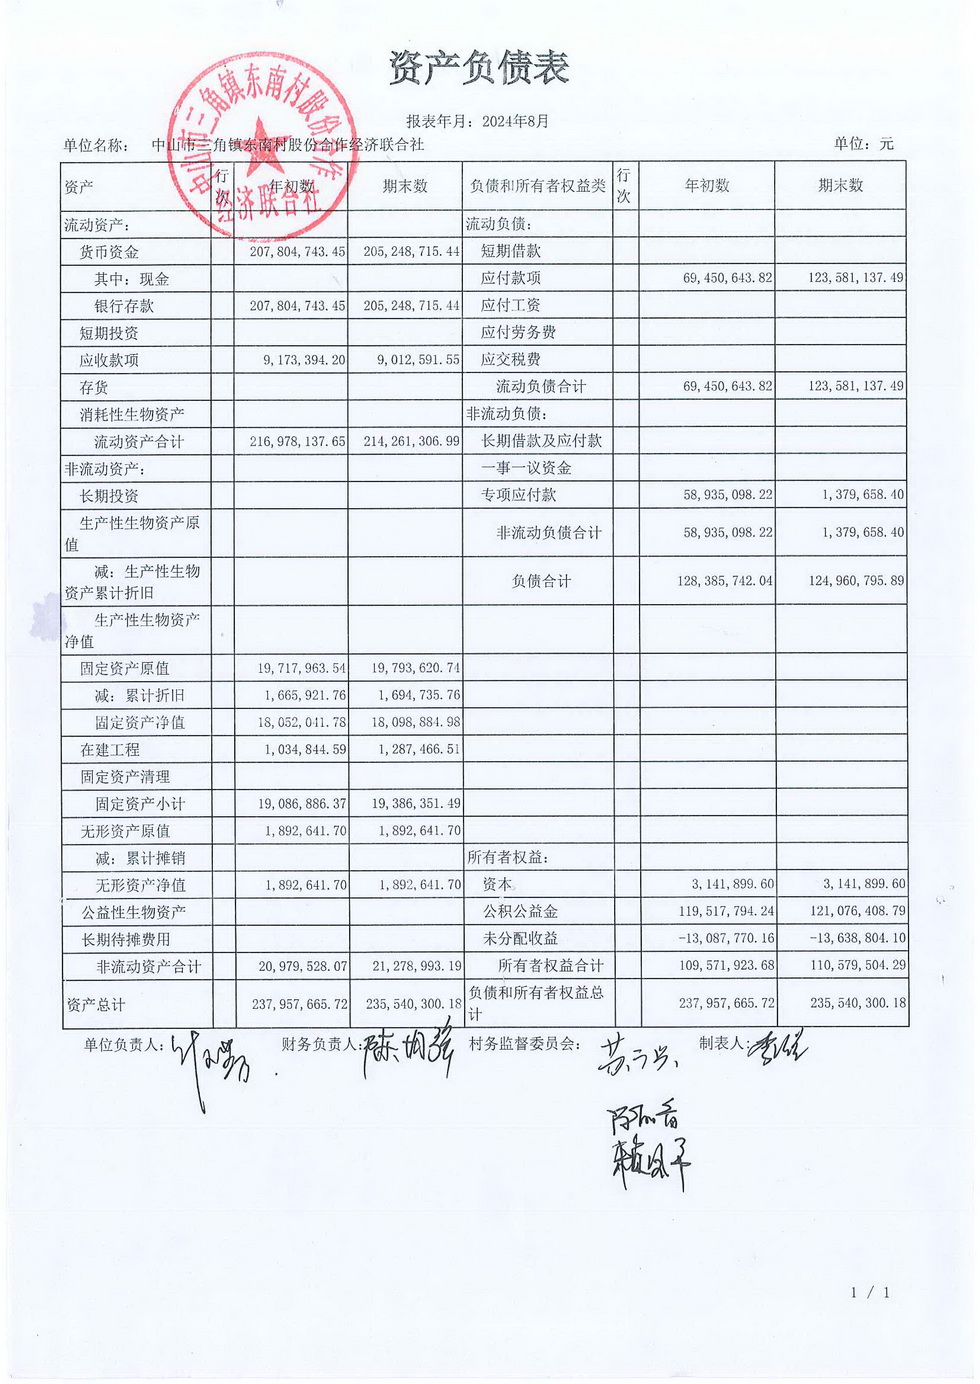 资产负债表
报表年月：2024年8月
单位名称： 中山市三角镇东南村股份合作经济联合社 单位：元
中山市三角镇东南村股份合作
经济联合社
资产 行次 年初数 期末数 负债和所有者权益类 行次 年初数 期末数
流动资产： 流动负债：
货币资金 207,804,743.45 205,248,715.44 短期借款
其中：现金 应付款项 69,450,643.82 123,581,137.49
银行存款 207,804,743.45 205,248,715.44 应付工资
短期投资 应付劳务费
应收款项 9,173,394.20 9,012,591.55 应交税费
存货 流动负债合计 69,450,643.82 123,581,137.49
消耗性生物资产 非流动负债：
流动资产合计 216,978,137.65 214,261,306.99 长期借款及应付款
非流动资产： 一事一议资金
长期投资 专项应付款 58,935,098.22 1,379,658.40
生产性生物资产原值 非流动负债合计 58,935,098.22 1,379,658.40
减：生产性生物资产累计折旧 负债合计 128,385,742.04 124,960,795.89
生产性生物资产净值
固定资产原值 19,717,963.54 19,793,620.74
减：累计折旧 1,665,921.76 1,694,735.76
固定资产净值 18,052,041.78 18,098,884.98
在建工程 1,034,844.59 1,287,466.51
固定资产清理
固定资产小计 19,086,886.37 19,386,351.49
无形资产原值 1,892,641.70 1,892,641.70
减：累计摊销 所有者权益：
无形资产净值 1,892,641.70 1,892,641.70 资本 3,141,899.60 3,141,899.60
公益性生物资产 公积公益金 119,517,794.24 121,076,408.79
长期待摊费用 未分配收益 -13,087,770.16 -13,638,804.10
非流动资产合计 20,979,528.07 21,278,993.19 所有者权益合计 109,571,923.68 110,579,504.29
资产总计 237,957,665.72 235,540,300.18 负债和所有者权益总计 237,957,665.72 235,540,300.18
单位负责人： 财务负责人： 村务监督委员会： 制表人：
1 / 1